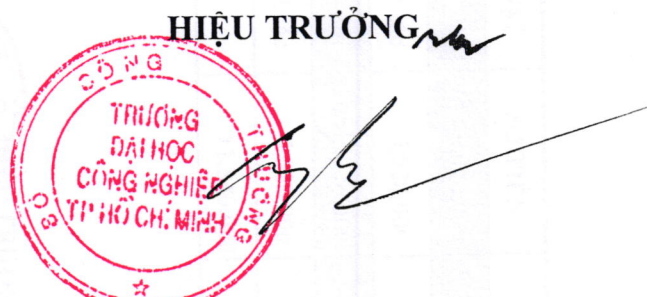 HIỆU TRƯỞNG
BỘ CÔNG THƯƠNG
TRƯỜNG
ĐẠI HỌC
CÔNG NGHIỆP
TP HỒ CHÍ MINH